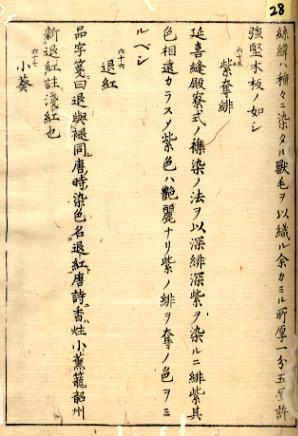 28
絲緯ハ種々ニ染タル獸毛ヲ以織ル余カミル所厚一分五厘許
強堅木板ノ如シ
六十五
紫奪緋
延喜縫殿寮式ノ襍染ノ法ヲ以深緋深紫ヲ染ルニ緋紫其
色相遠カラスメ紫色ハ艶麗ナリ紫ノ緋ヲ奪ノ色ヲミ
ルベシ
六十六
退紅
品字箋曰退與褪同唐時染色名退紅唐詩香炷小薰籠韶州
新退紅註淺紅也
六十七
小葵